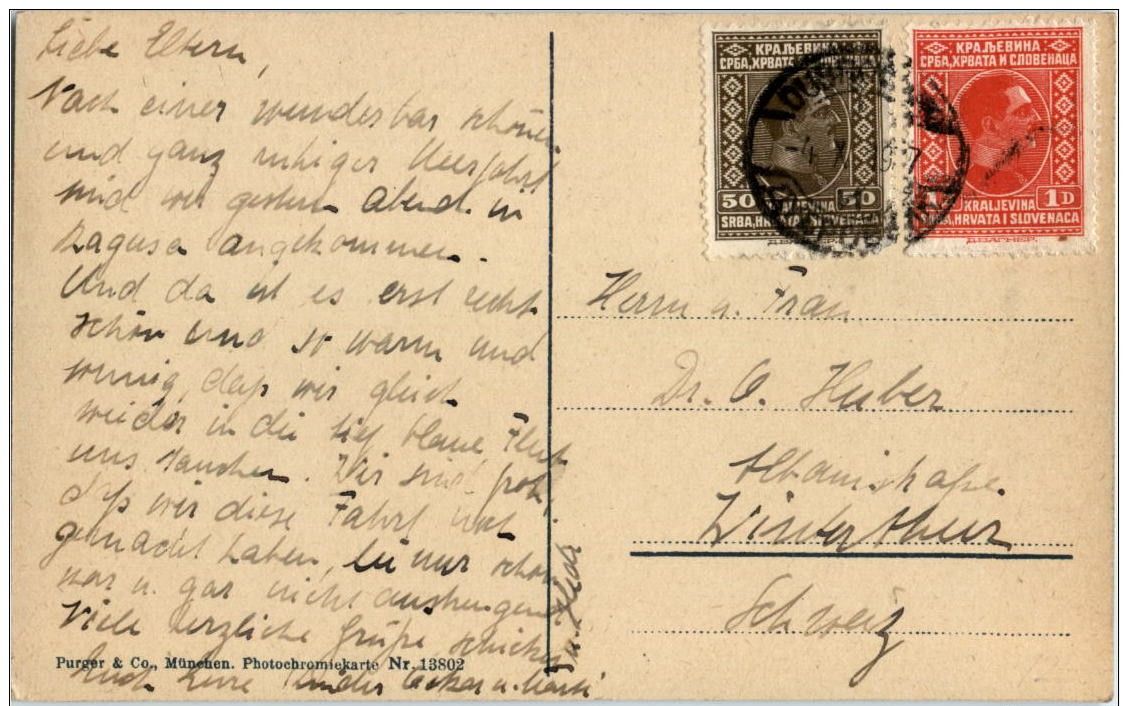 Liebe Eltern,
Nach einer wunderbar schönen
und ganz ruhiger Meerfahrt
sind wir gestern Abend in
Ragusa angekommen.
Und da ist es erst recht
schön und so warm und
sonnig, daß wir gleich
wieder in die tief blaue Flut
uns tauchen. Wir sind froh,
daß wir diese Fahrt mit
gemacht haben, die nur schön
war u. gar nicht anstrengend
Viele herzliche Grüße schicken
Euch Eure Kinder
Purger & Co., München. Photochromiekarte Nr. 13802
КРАЉЕВИНА
СРБА, ХРВАТА И СЛОВЕНАЦА
50 KRALJEVINA 50
SRBA, HRVATA I SLOVENACA
Д. ВАГНЕР.
КРАЉЕВИНА
СРБА, ХРВАТА И СЛОВЕНАЦА
1D KRALJEVINA 1D
SRBA, HRVATA I SLOVENACA
Д. ВАГНЕР.
Herrn u. Frau
Dr. O. Huber
Albanistraße
Winterthur
Schweiz